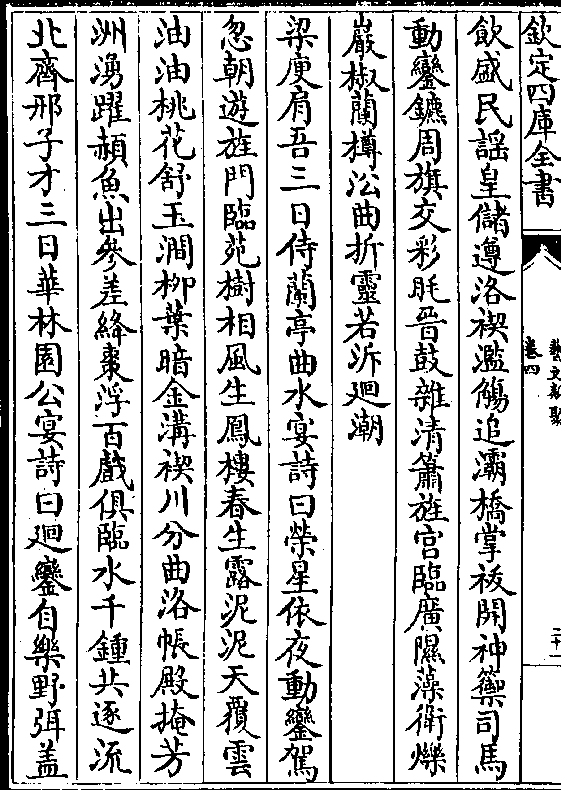 欽定四庫全書
藝文類聚
卷四
三十一
飲盛民謠皇儲遵洛禊濫觴追灞橋掌祓開神籞司馬
動鑾鑣周旗交彩眊晉鼓雜清簫旌宮臨廣隰藻衛爍
巖椒蘭樽㳂曲折靈若泝廻潮
梁庾肩吾三日侍蘭亭曲水宴詩曰榮星依夜動鑾駕
忽朝遊旌門臨苑樹相風生鳳樓春生露泥泥天覆雲
油油桃花舒玉澗柳葉暗金溝禊川分曲洛帳殿掩芳
洲湧躍頳魚出參差絳棗浮百戲俱臨水千鍾共逐流
北齊邢子才三日華林園公宴詩曰廻鑾自樂野弭盖